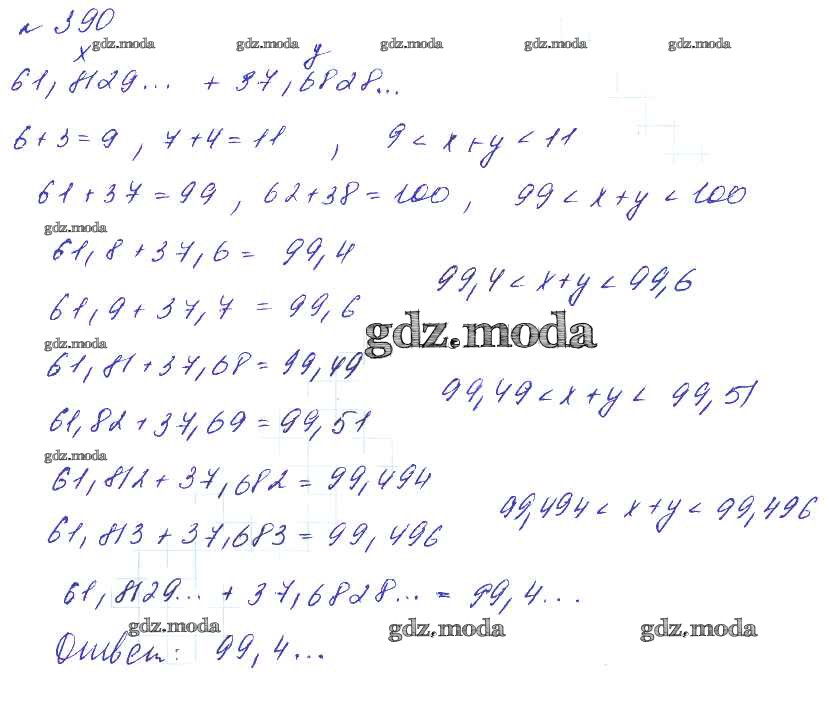 № 390
gdz.moda gdz.moda gdz.moda gdz.moda
x y
61,8129... + 37,6828...
6+3=9 , 7+4=11 , 9 < x+y < 11
61+37=99 , 62+38=100 , 99 < x+y < 100
gdz.moda
61,8+37,6= 99,4
99,4 < x+y < 99,6
61,9+37,7 = 99,6
gdz.moda
gdz.moda
61,81+37,68=99,49
99,49 < x+y < 99,51
61,82+37,69=99,51
gdz.moda
61,812+37,682=99,494
99,494 < x+y < 99,496
61,813+37,683=99,496
61,8129... + 37,6828... = 99,4...
gdz.moda gdz.moda gdz.moda
Ответ: 99,4...